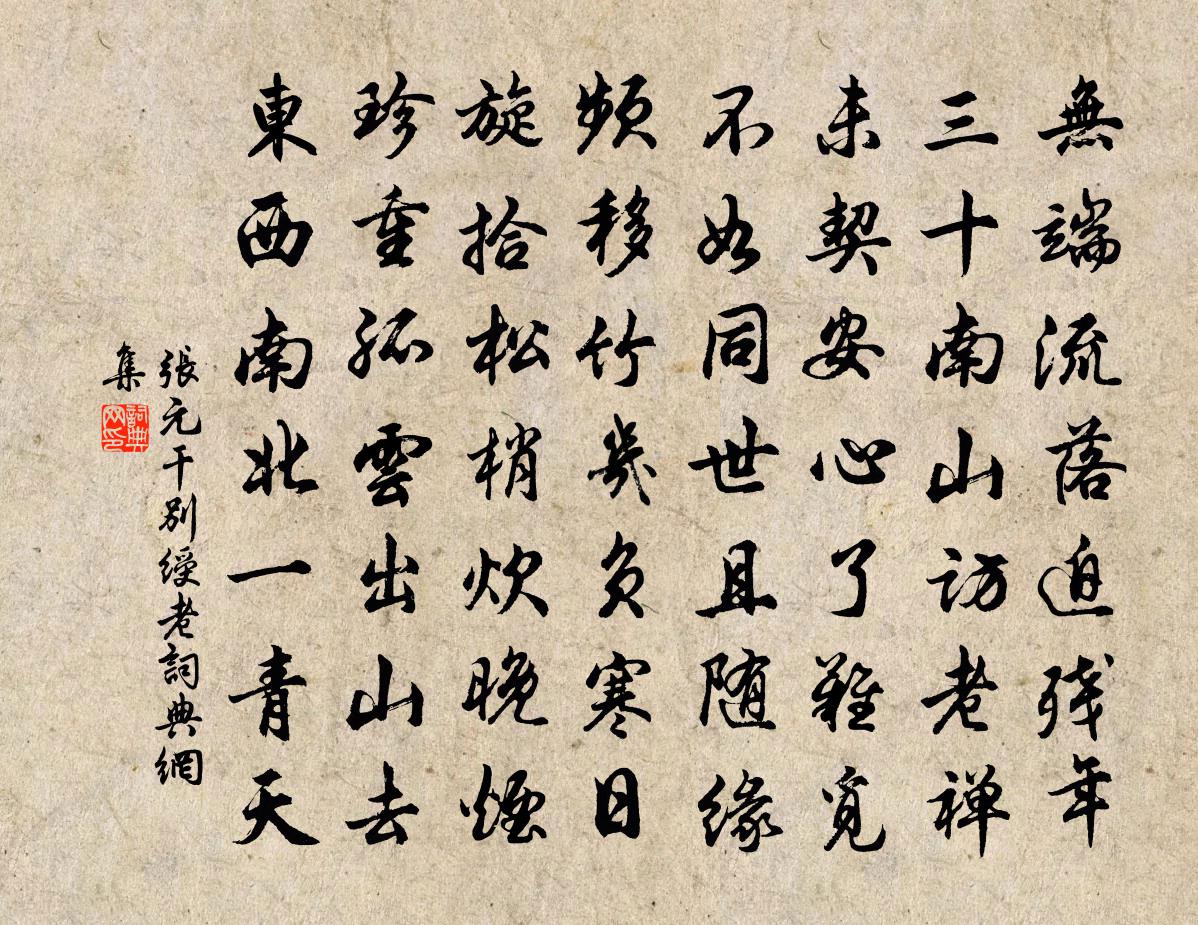 無端流落迫残年
三十南山訪老禅
未契安心了難覓
不如同世且随緣
頻移竹几負寒日
旋拾松梢炊晚煙
珍重孤雲出山去
東西南北一青天
張元干別綬老詞典網
集
詞典
网印